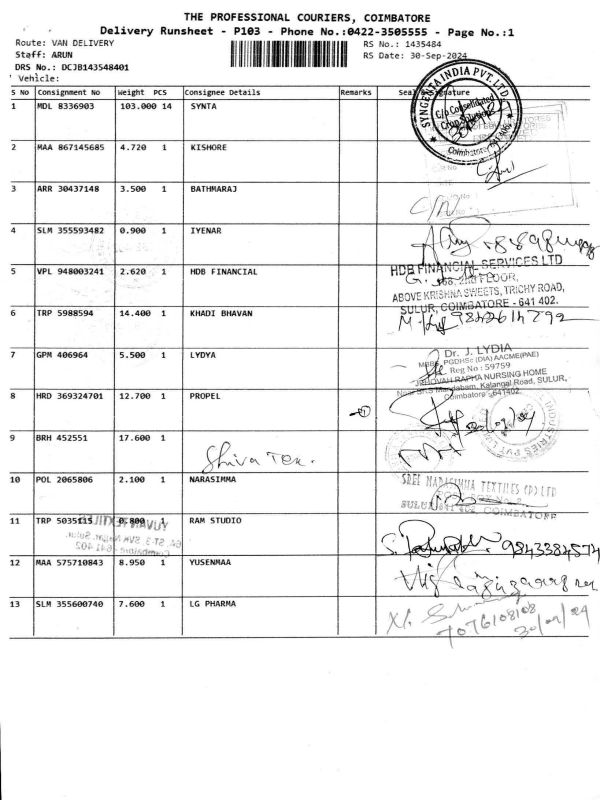 THE PROFESSIONAL COURIERS, COIMBATORE
Delivery Runsheet - P103 - Phone No.:0422-3505555 - Page No.:1
Route: VAN DELIVERY RS No.: 1435484
Staff: ARUN RS Date: 30-Sep-2024
DRS No.: DCJB143548401
Vehicle:
S No Consignment No Weight PCS Consignee Details Remarks Seal Signature
1 MDL 8336903 103.000 14 SYNTA
SYNGENTA INDIA PVT. LTD
C/o Consolidated
Crop Solutions
Coimbatore
2 MAA 867145685 4.720 1 KISHORE
3 ARR 30437148 3.500 1 BATHMARAJ
4 SLM 355593482 0.900 1 IYENAR
5 VPL 948003241 2.620 1 HDB FINANCIAL
HDB FINANCIAL SERVICES LTD
2nd FLOOR,
ABOVE KRISHNA SWEETS, TRICHY ROAD,
SULUR, COIMBATORE - 641 402.
6 TRP 5988594 14.400 1 KHADI BHAVAN
7 GPM 406964 5.500 1 LYDYA
Dr. J. LYDIA
MBBS, PGDHSc (DIA) AACME(PAE)
Reg No : 59759
JEHOVAH RAPHA NURSING HOME
Kalangal Road, SULUR,
Coimbatore - 641402.
8 HRD 369324701 12.700 1 PROPEL
9 BRH 452551 17.600 1
Shiva Tex.
10 POL 2065806 2.100 1 NARASIMMA
SREE NARASIMHA TEXTILES (P) LTD
SULUR 641 402, COIMBATORE
11 TRP 5035115 0.800 1 RAM STUDIO
9843384574
12 MAA 575710843 8.950 1 YUSENMAA
13 SLM 355600740 7.600 1 LG PHARMA
7076108108
30/09/24